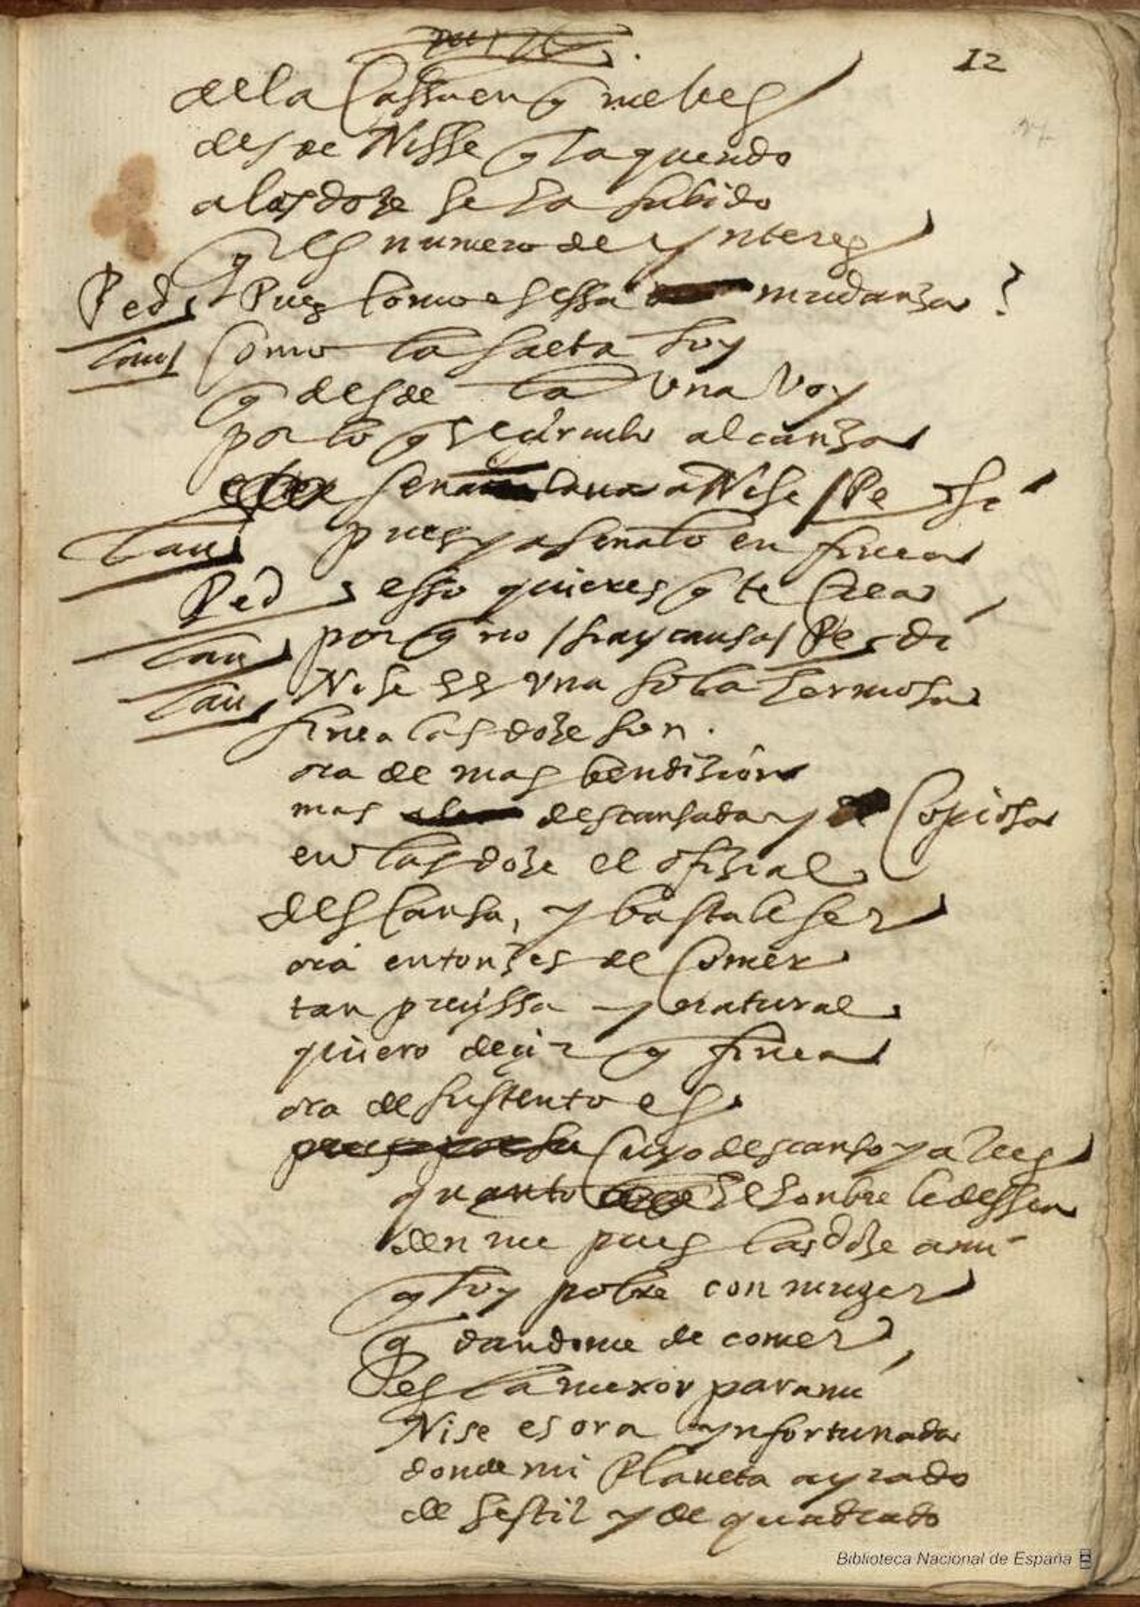 12
de la Cassa en q me bes
desde Nisse q la querido
a las doze se ha subido
q es numero de ynteres
Ped Pues como es essa mudanza?
Lau Como la saeta soy
q desde la una voy
por lo q el circulo alcanza
sena Laura a Nise / Pe si
Lau pues ya senalo en finea
Ped esso quieres q te crea
Lau por q no / hay causa / Pe di
Lau Nise es una sola hermosa
finea las doze son.
ora de mas bendizion
mas descansada y Copiosa
en las doze el ofizial
desCansa, y basta le ser
ora entonzes de Comer
tan preçissa y natural
quiero deçir q finea
ora de sustento es
Cuyo descanso ya ves
quanto el honbre le dessea
denme pues las doze a mi
q soy pobre con muger
q dandome de comer
es la mexor para mi
Nise es ora ynfortunada
donde mi Planeta ayrado
de sestil y de quadrado
Biblioteca Nacional de España